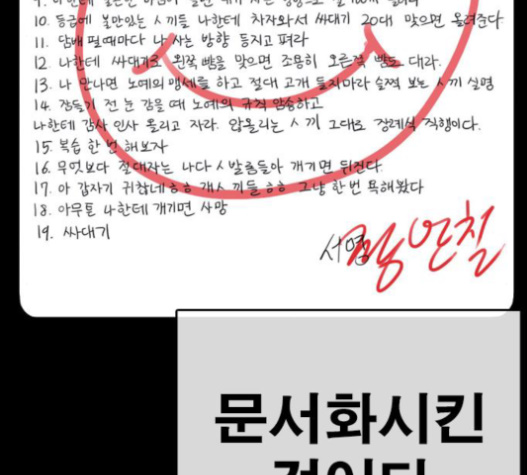 10. 등급에 불만있는 ㅅ끼들 나한테 차자와서 싸대기 20대 맞으면 올려준다
11. 담배 필때마다 나 사는 방향 등지고 펴라
12. 나한테 싸대기로 왼쪽 뺨을 맞으면 조용히 오른쪽 뺨도 대라.
13. 나 만나면 노예의 맹세를 하고 절대 고개 들지마라 슬쩍 보는 ㅅ끼 실명
14. 잠들기 전 눈 감을 때 노예의 규칙 암송하고
나한테 감사 인사 올리고 자라. 안올리는 ㅅ끼 그대로 장례식 직행이다.
15. 복습 한 번 해보자
16. 무엇보다 절대자는 나다 ㅅ발롬들아 개기면 뒤진다.
17. 아 갑자기 귀찮네ㅎㅎ 개ㅅ끼들ㅎㅎ 그냥 한번 욕해봤다
18. 아무튼 나한테 개기면 사망
19. 싸대기
서명
문서화시킨
것이다